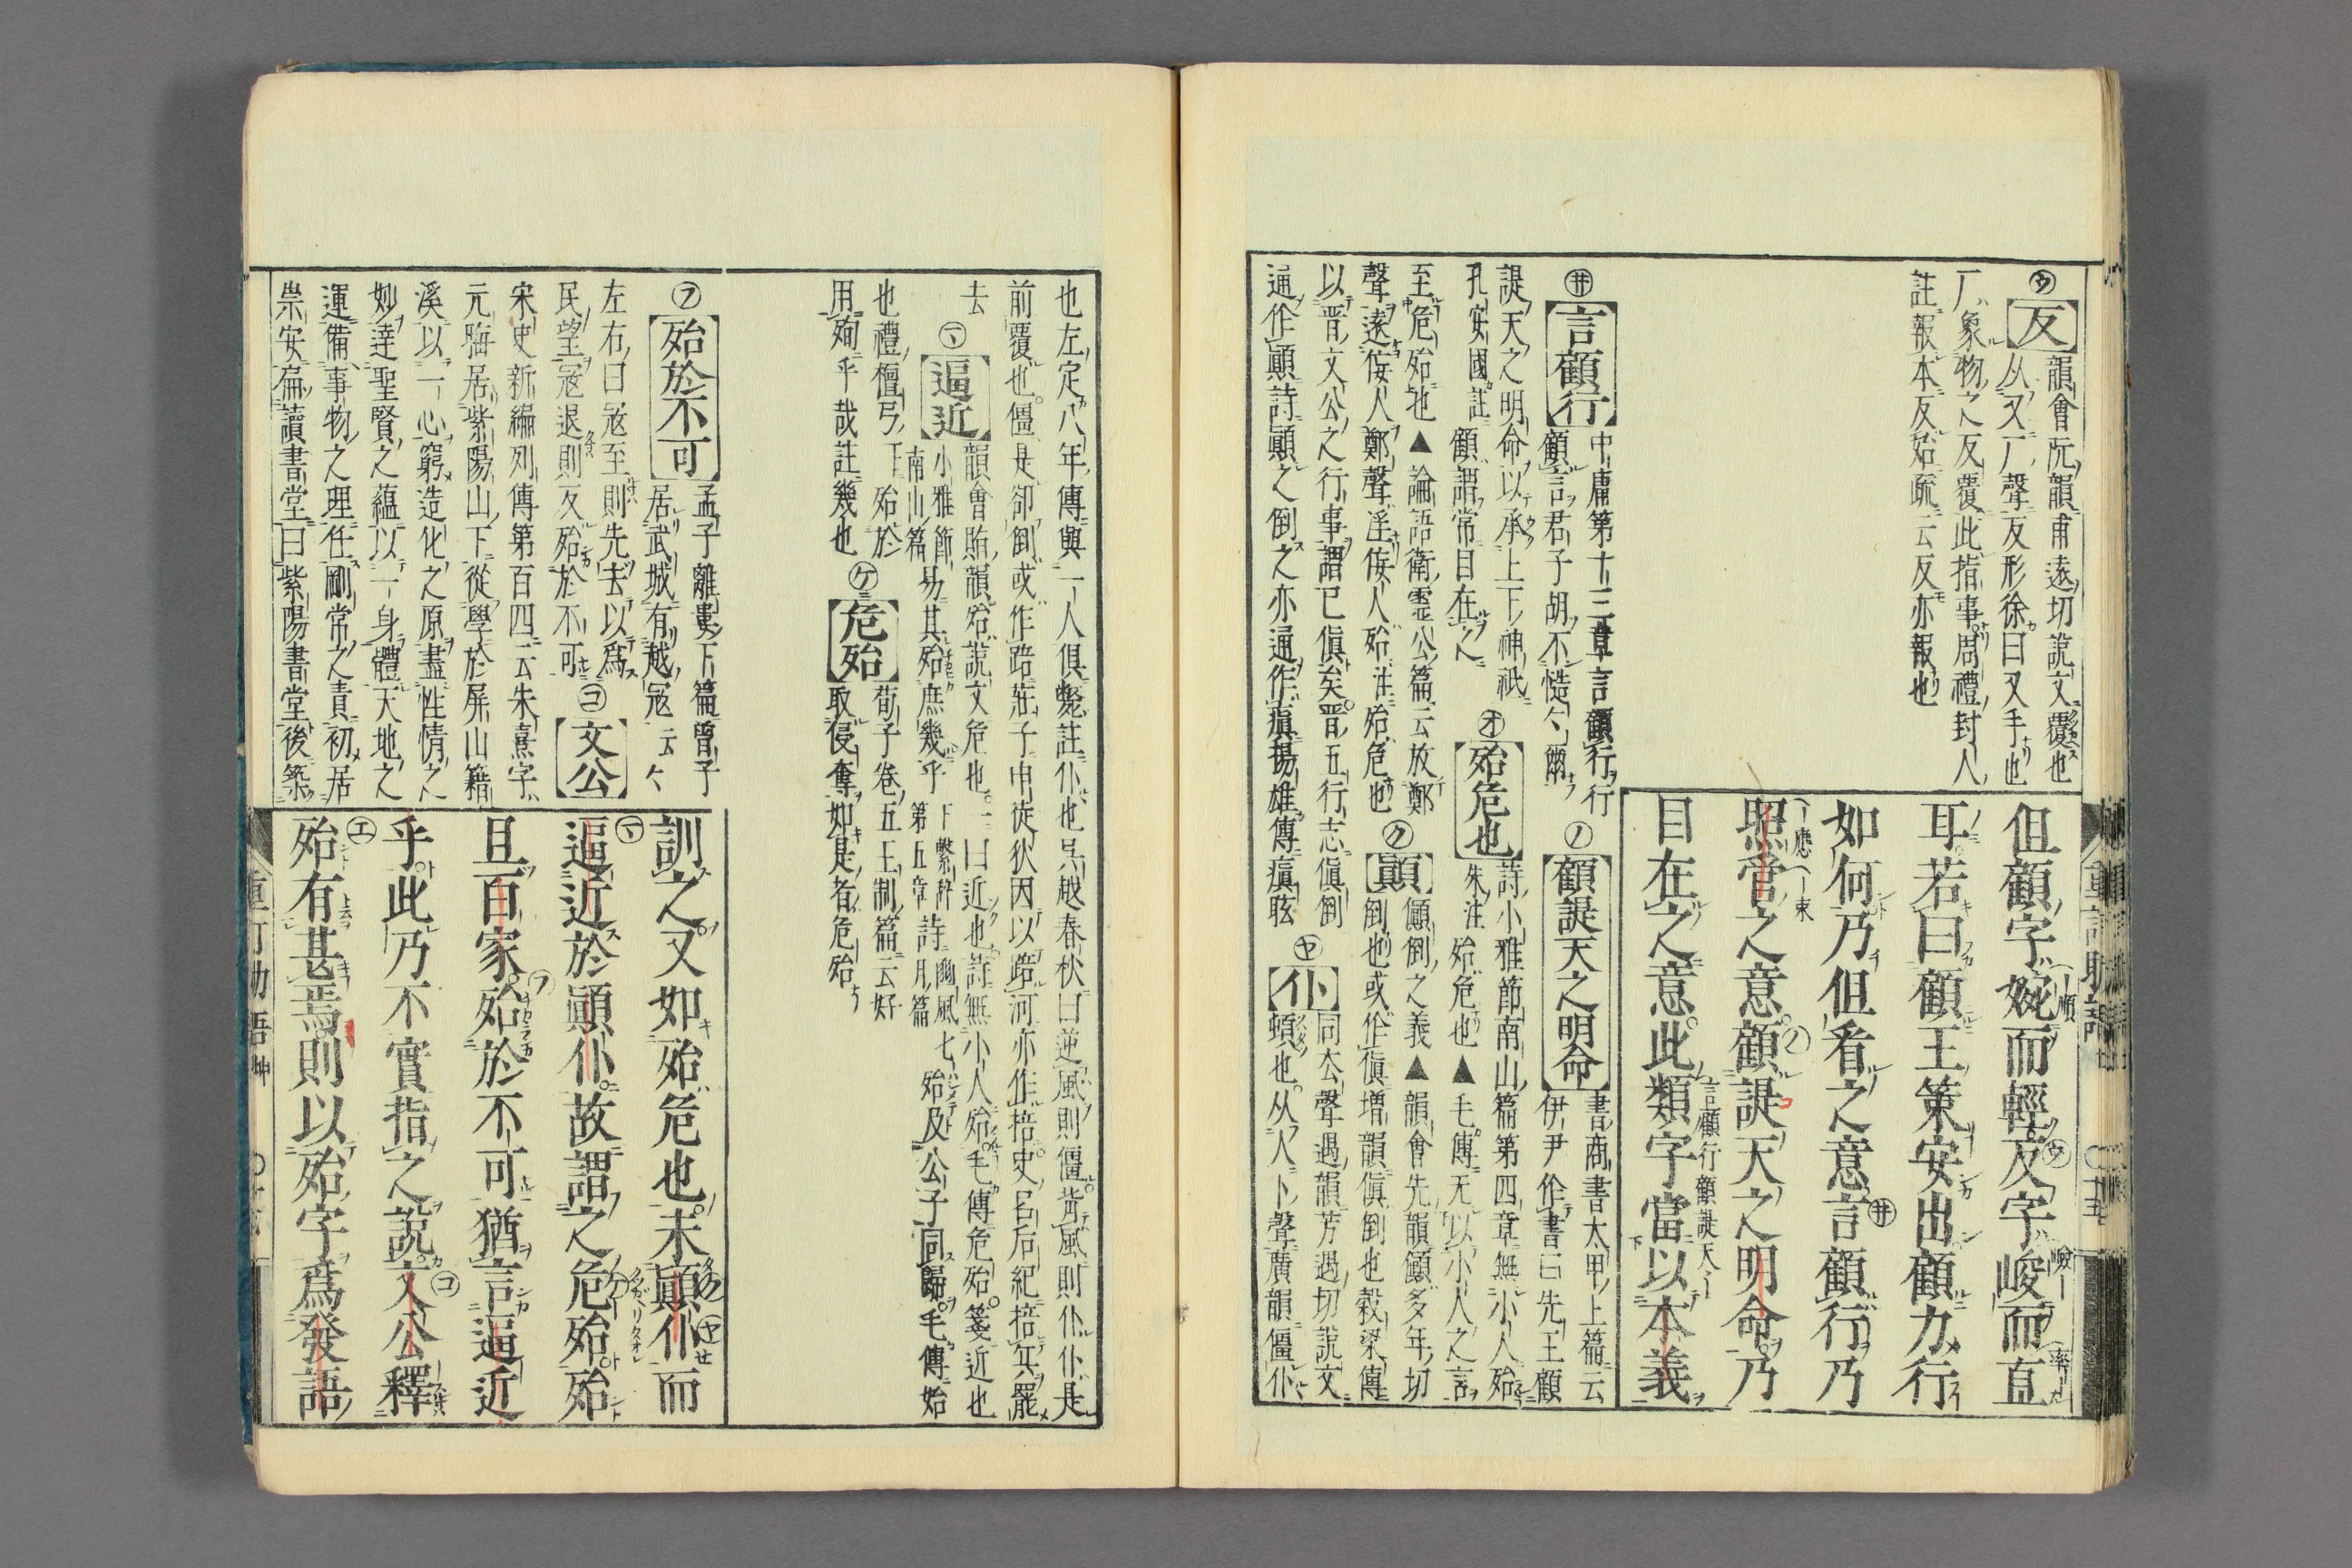 ㋒反 韻會阮韻甫遠切說文覆也
从又厂聲反形徐曰又手也
厂象物之反覆此指事周禮封人
註報本反始疏云反亦報也
但顧字婉而輕反字峻而直
耳若曰顧王策安出顧力行
如何乃但看之意言顧行乃
照管之意顧諟天之明命乃
目在之意此類字當以本義
㋼言顧行 中庸第十三章言顧行行
顧言君子胡不慥〻爾 ㋨顧諟天之明命 書商書太甲上篇云
伊尹作書曰先王顧
諟天之明命以承上下神祇
孔安國註顧謂常目在之 ㋔殆危也 詩小雅節南山篇第四章無小人殆
朱註殆危也▲毛傳无以小人之言
至危殆也▲論語衛靈公篇云放鄭
聲遠佞人鄭聲淫佞人殆註殆危也 ㋗顚 顚倒之義▲韻會先韻顚多年切
倒也或作傎增韻傎倒也穀梁傳
以晋文公之行事謂已傎矣晋五行志傎倒
通作顚詩顚之倒之亦通作瘨揚雄傳瘨眩 ㋳仆 同去聲遇韻芳遇切說文
頓也从人卜聲廣韻僵仆
也左定八年傳與一人俱斃註仆也吳越春秋曰逆風則僵背風則仆仆是
前覆也僵是卻倒或作踣莊子申徒狄因以踣河亦作掊史呂后紀掊兵罷
去 ㋮逼近 韻會賄韻殆說文危也一曰近也詩無小人殆毛傳危殆箋近也
小雅節南山篇易其殆庶幾乎下繫辞第五章詩豳風七月篇殆及公子同歸毛傳始
也禮檀弓下殆於
用殉乎哉註幾也 ㋘危殆 荀子卷五王制篇云好
取侵奪如是者危殆
㋫殆於不可 孟子離婁下篇曾子
居武城有越寇云〻
左右曰寇至則先去以爲
民望寇退則反殆於不可 ㋙文公
宋史新編列傳第百四云朱熹字
元晦居紫陽山下從學於屏山籍
溪以一心窮造化之原盡性情之
妙達聖賢之蘊以一身體天地之
運備事物之理任剛常之責初居
崇安扁讀書堂曰紫陽書堂後築
訓之又如殆危也未顚仆而
逼近於顚仆故謂之危殆殆
且百家殆於不可猶言逼近
乎此乃不實指之說文公釋
殆有甚焉則以殆字爲發語